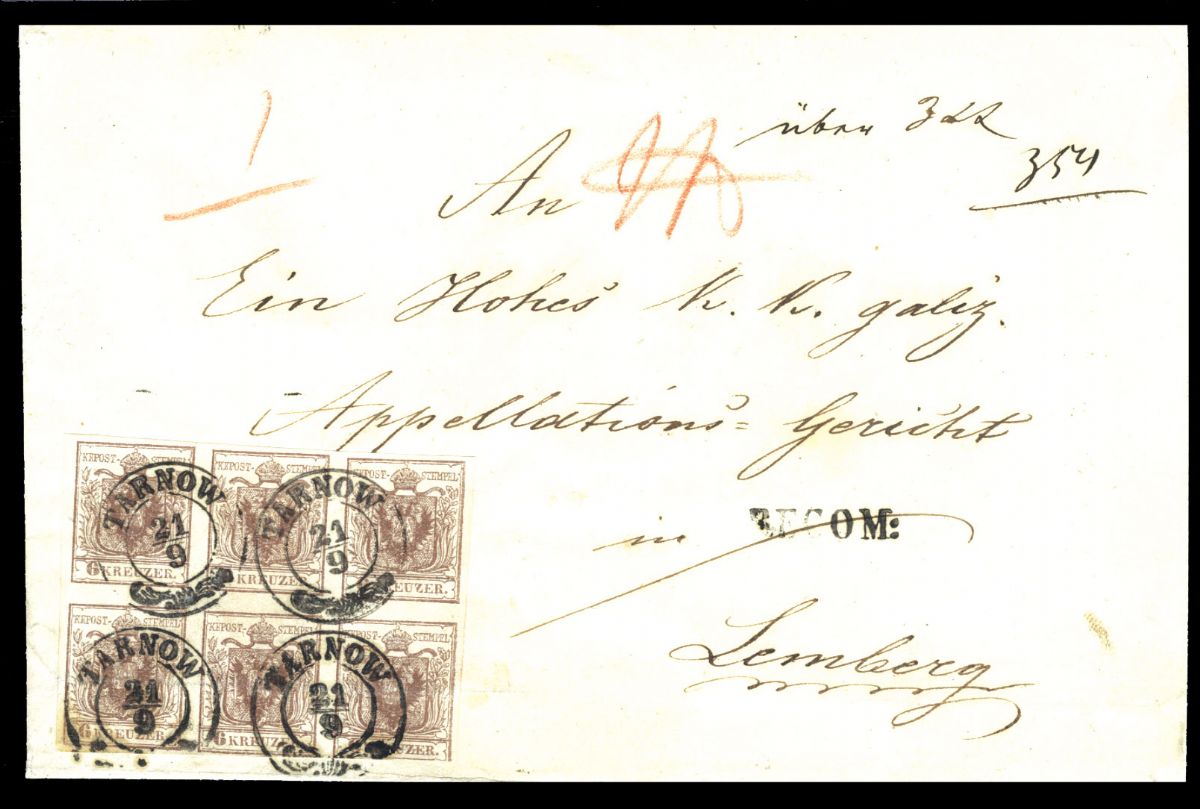 1
über 3 Lt
354
An
Ein Hohes k. k. galiz.
Appellations= Gericht
RECOM:
in
Lemberg
KKPOST-STEMPEL KKPOST-STEMPEL KKPOST-STEMPEL
TARNOW TARNOW
21/9 21/9
6 KREUZER. 6 KREUZER. 6 KREUZER.
KKPOST-STEMPEL KKPOST-STEMPEL KKPOST-STEMPEL
TARNOW TARNOW
21/9 21/9
6 KREUZER. 6 KREUZER. 6 KREUZER.